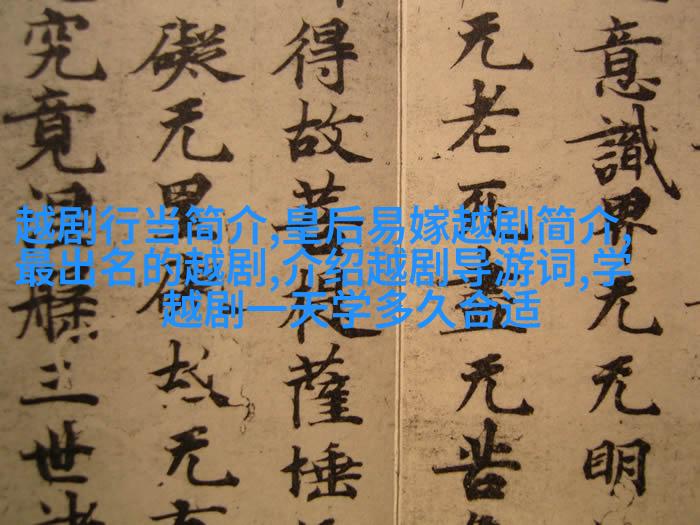 越剧行当简介,皇后易嫁越剧简介,
最出名的越剧,介绍越剧导游词,学
越剧一天学多久合适
意識界无无明
无老死盡无苦
得故菩提薩埵
礙无罣礙故无有
究竟涅槃三世諸